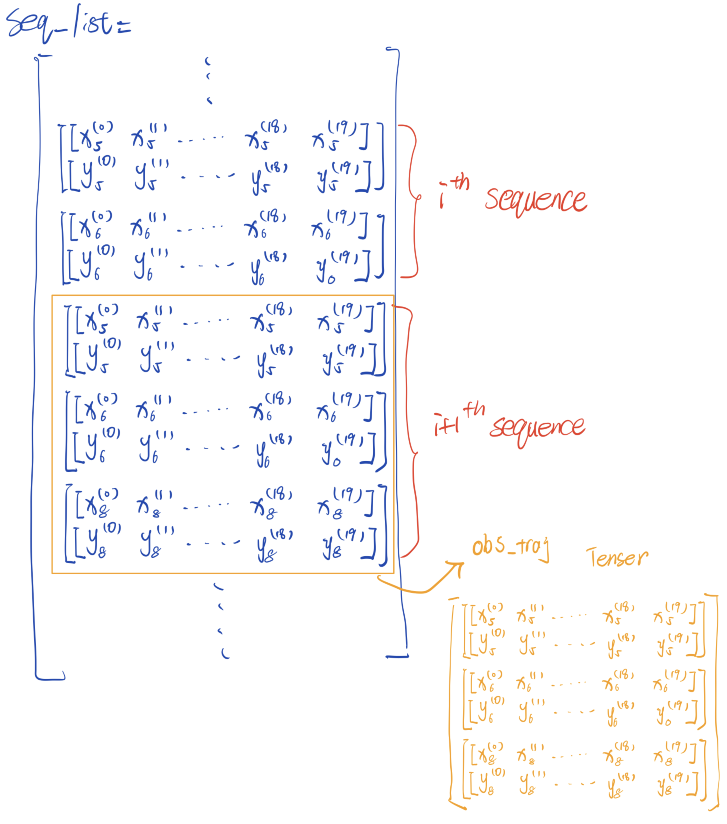 Seq_list=
[[x₅⁽⁰⁾ x₅⁽¹⁾ ..... x₅⁽¹⁸⁾ x₅⁽¹⁹⁾]
[y₅⁽⁰⁾ y₅⁽¹⁾ ..... y₅⁽¹⁸⁾ y₅⁽¹⁹⁾]]
iᵗʰ sequence
[[x₆⁽⁰⁾ x₆⁽¹⁾ ..... x₆⁽¹⁸⁾ x₆⁽¹⁹⁾]
[y₆⁽⁰⁾ y₆⁽¹⁾ ..... y₆⁽¹⁸⁾ y₀⁽¹⁹⁾]]
[[x₅⁽⁰⁾ x₅⁽¹⁾ ..... x₅⁽¹⁸⁾ x₅⁽¹⁹⁾]
[y₅⁽⁰⁾ y₅⁽¹⁾ ..... y₅⁽¹⁸⁾ y₅⁽¹⁹⁾]]
[[x₆⁽⁰⁾ x₆⁽¹⁾ ..... x₆⁽¹⁸⁾ x₆⁽¹⁹⁾]
i+1ᵗʰ sequence
[y₆⁽⁰⁾ y₆⁽¹⁾ ..... y₆⁽¹⁸⁾ y₀⁽¹⁹⁾]]
[[x₈⁽⁰⁾ x₈⁽¹⁾ ..... x₈⁽¹⁸⁾ x₈⁽¹⁹⁾]
[y₈⁽⁰⁾ y₈⁽¹⁾ ..... y₈⁽¹⁸⁾ y₈⁽¹⁹⁾]]
obs_traj Tenser
[[x₅⁽⁰⁾ x₅⁽¹⁾ ..... x₅⁽¹⁸⁾ x₅⁽¹⁹⁾]
[y₅⁽⁰⁾ y₅⁽¹⁾ ..... y₅⁽¹⁸⁾ y₅⁽¹⁹⁾]]
[[x₆⁽⁰⁾ x₆⁽¹⁾ ..... x₆⁽¹⁸⁾ x₆⁽¹⁹⁾]
[y₆⁽⁰⁾ y₆⁽¹⁾ ..... y₆⁽¹⁸⁾ y₀⁽¹⁹⁾]]
[[x₈⁽⁰⁾ x₈⁽¹⁾ ..... x₈⁽¹⁸⁾ x₈⁽¹⁹⁾]
[y₈⁽⁰⁾ y₈⁽¹⁾ ..... y₈⁽¹⁸⁾ y₈⁽¹⁹⁾]]